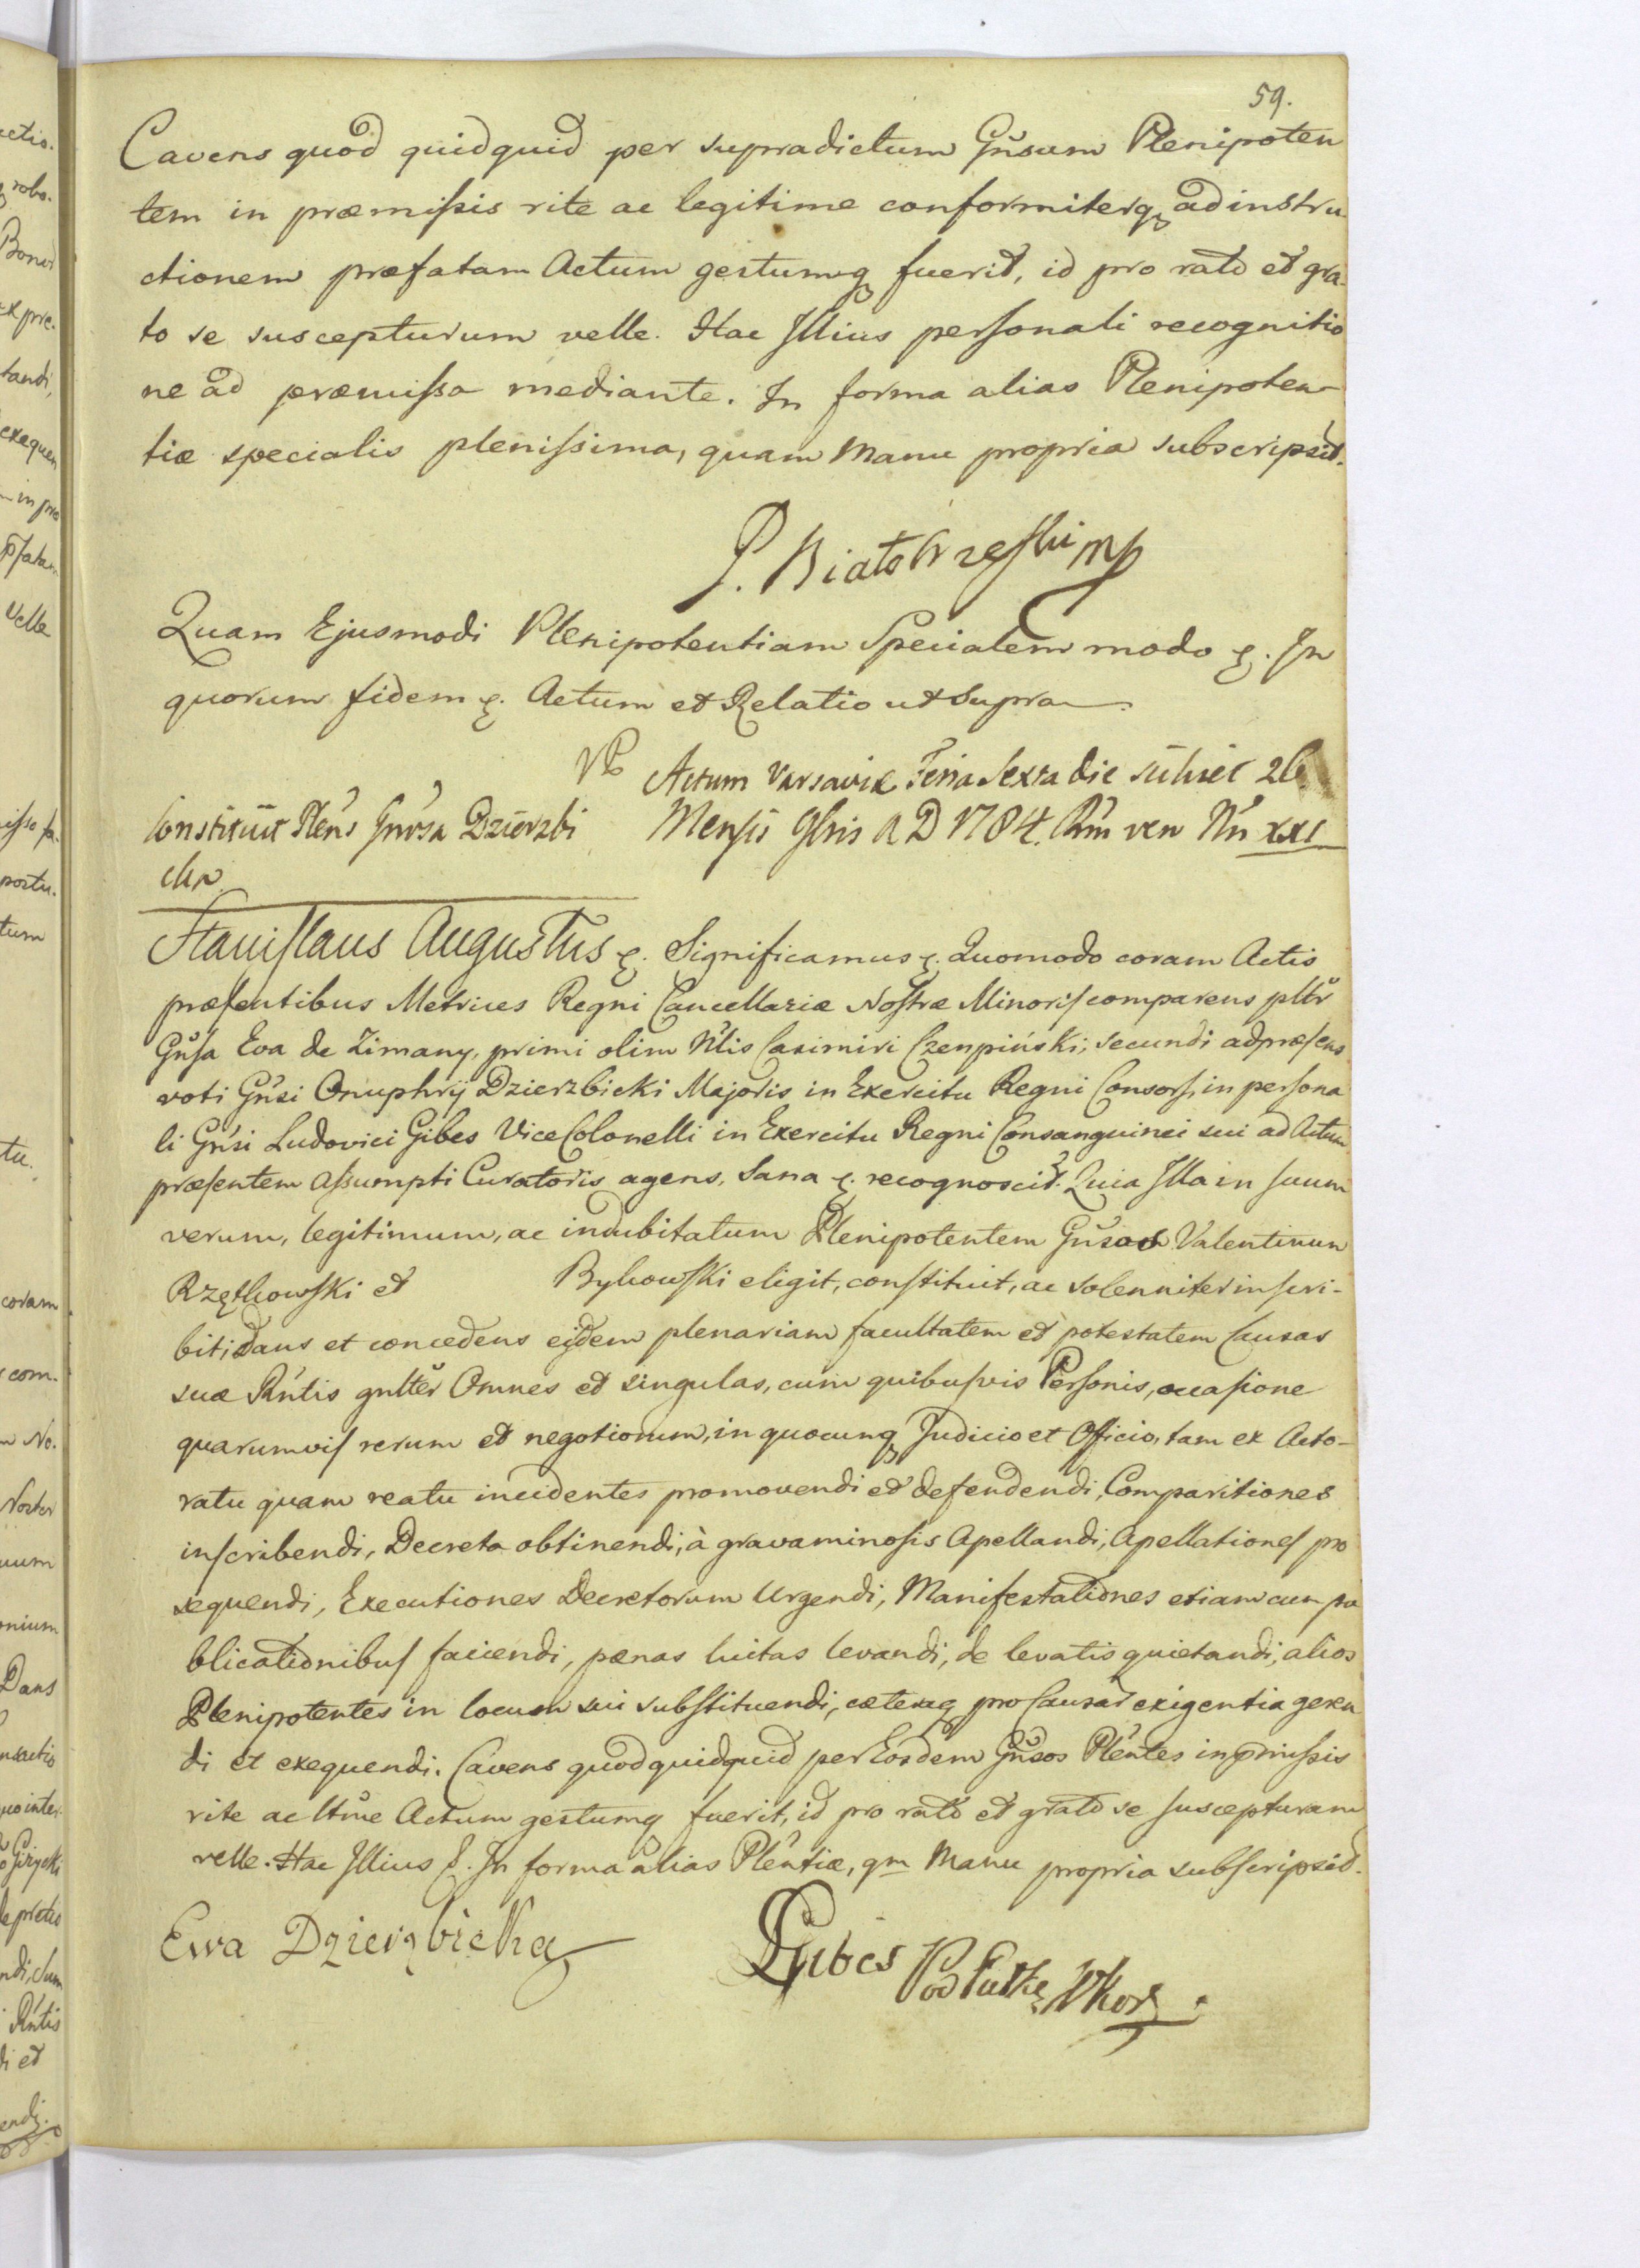 59.
Cavens quod quidquid per supradictum Gnsum Plenipoten
tem in præmissis rite ac legitime conformiterq ad instru
ctionem præfatam Actum gestumq fuerit, id pro rato et gra-
to se suscepturum velle. Hac Illius personali recognitio
ne ad præmissa mediante. In forma alias Plenipoten-
tiæ specialis plenissima, quam Manu propria subscripsit.
P. Białobrzeski mp
Quam Ejusmodi Plenipotentiam Specialem modo &. In
quorum fidem &. Actum et Relatio ut supra
Actum Varsaviæ Feria Sexta die 26
Constituit Plens Gnrsa Dzierzbi
Mensis 9bris A D 1784.
cka
Stanislaus Augustus &. Significamus &. Quomodo coram Actis
præsentibus Metrices Regni Cancellariæ Nostræ Minoris comparens pltr
Gnsa Eva de Zimany, primi olim Nlis Casimiri Czenpiński, secundi ad præsens
voti Gnsi Onuphrij Dzierzbicki Majoris in Exercitu Regni Consors, in persona
li Gnsi Ludovici Gibes Vice Colonelli in Exercitu Regni Consanguinei sui ad Actum
præsentem assumpti Curatoris agens, Sana &. recognoscit. Quia Illa in suum
verum, legitimum, ac indubitatum Plenipotentem Gnsos Valentinum
Rzętkowski et Bykowski eligit, constituit, ac solenniter inscri-
bit, dans et concedens eidem plenariam facultatem et potestatem Causas
suæ Rntis gnltèr Omnes et singulas, cum quibusvis Personis, occasione
quarumvis rerum et negotiorum, in quocunq Judicio et Officio, tam ex Acto-
ratu quam reatu incidentes promovendi et defendendi, Comparitiones
inscribendi, Decreta obtinendi, à gravaminosis Apellandi, Apellationes pro
sequendi, Executiones Decretorum Urgendi, Manifestationes etiam cum pu
blicationibus faciendi, pænas luitas levandi, de levatis quietandi, alios
Plenipotentes in locum sui substituendi, cæteraq pro Causar exigentia geren
di et exequendi. Cavens quod quidquid per Eosdem Gnsos Plentes in pmissis
rite ac ltime Actum gestumq fuerit, id pro rato et grato se suscepturam
velle. Hac Illius &. In forma alias Plentiæ, qm Manu propria subscripsit.
Ewa Dzierzbicka
LGibes Pod Putke WKor